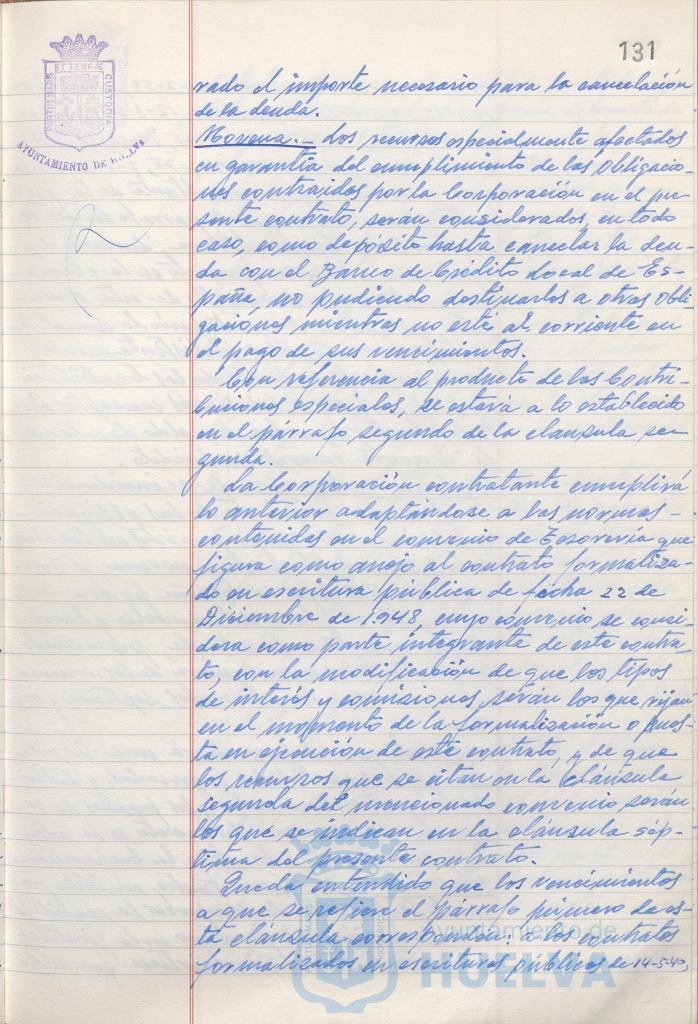 131
PORTUS MARIS ET TERRAE CUSTODIA
AYUNTAMIENTO DE HUELVA
rado el importe necesario para la cancelación
de la deuda.
Novena.- Los recursos especialmente afectados
en garantía del cumplimiento de las obligacio-
nes contraidas por la Corporación en el pre-
sente contrato, serán considerados, en todo
caso, como depósito hasta cancelar la deu-
da con el Banco de Crédito Local de Es-
paña, no pudiendo destinarlos a otras obli-
gaciones mientras no esté al corriente en
el pago de sus vencimientos.
Con referencia al producto de las Contri-
buciones especiales, se estará a lo establecido
en el párrafo segundo de la cláusula se-
gunda.
La Corporación contratante cumplirá
lo anterior adaptándose a las normas-
contenidas en el convenio de Tesorería que
figura como anejo al contrato formaliza-
do en escritura pública de fecha 22 de
Diciembre de 1.948, cuyo convenio se consi-
dera como parte integrante de este contra-
to, con la modificación de que los tipos
de interés y comisiones, serán los que rijan
en el momento de la formalización o pues-
ta en ejecución de este contrato, y de que
los recursos que se citan en la cláusula
segunda del mencionado convenio serán
los que se indican en la cláusula sép-
tima del presente contrato.
Queda entendido que los vencimientos
a que se refiere el párrafo primero de es-
ta cláusula corresponden: a los contratos
formalizados en escrituras públicas de 14-5-40,
Ayuntamiento de
HUELVA